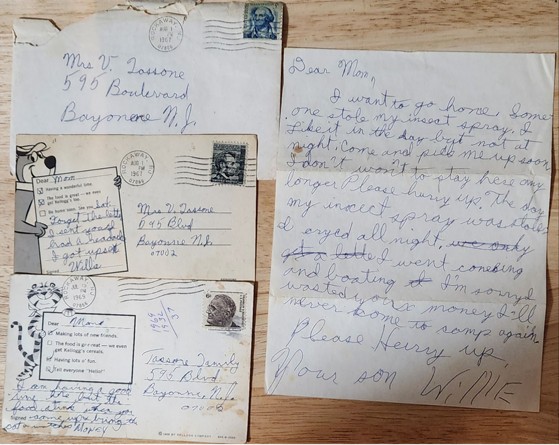 ROCKAWAY
AUG 1
1967
Mrs V. Tassone
595 Boulevard
Bayonne N.J.
ROCKAWAY
AUG 1
1967
Dear Mom
Having a wonderful time.
The food is great — we even
get Kellogg's
I'll be home soon. See you
Forget The letter
I sent you I
had a headache
I got upset
Willie
Mrs. V. Tassone
595 Blvd
Bayonne N.J.
07002
1969
6¢
Dear Mom
Making lots of new friends.
The food is great — we even
get Kellogg's cereals.
Having lots o' fun.
Tell everyone "Hello!"
I am having a good
time here but the
food
Signed
MONEY
Tassone Family
595 Blvd
Bayonne, N.J.
Dear Mom,
I want to go home. Some
one stole my insect spray. I
like it in the day but not at
night. Come and pick me up soon
I don't won't to stay here any
longer Please hurry up, the day
my insect spray was stole
I cryed all night.
I went conoeing
and boating I'm sorry I
wasted your money I'll
never come to camp again.
Please Hurry up
Your son WILLIE